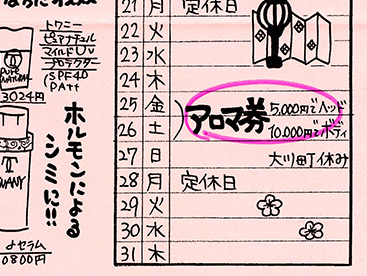 トワニー
ピュアナチュル
マイルドUV
プロテクター
SPF40
PA++
3024円
ホルモンによる
シミに!!
セラム
0800円
21 月 定休日
22 火
23 水
24 木
25 金
26 土
アロマ券
5,000円でヘッド
10,000円でボディ
27 日 大川町休み
28 月 定休日
29 火
30 水
31 木